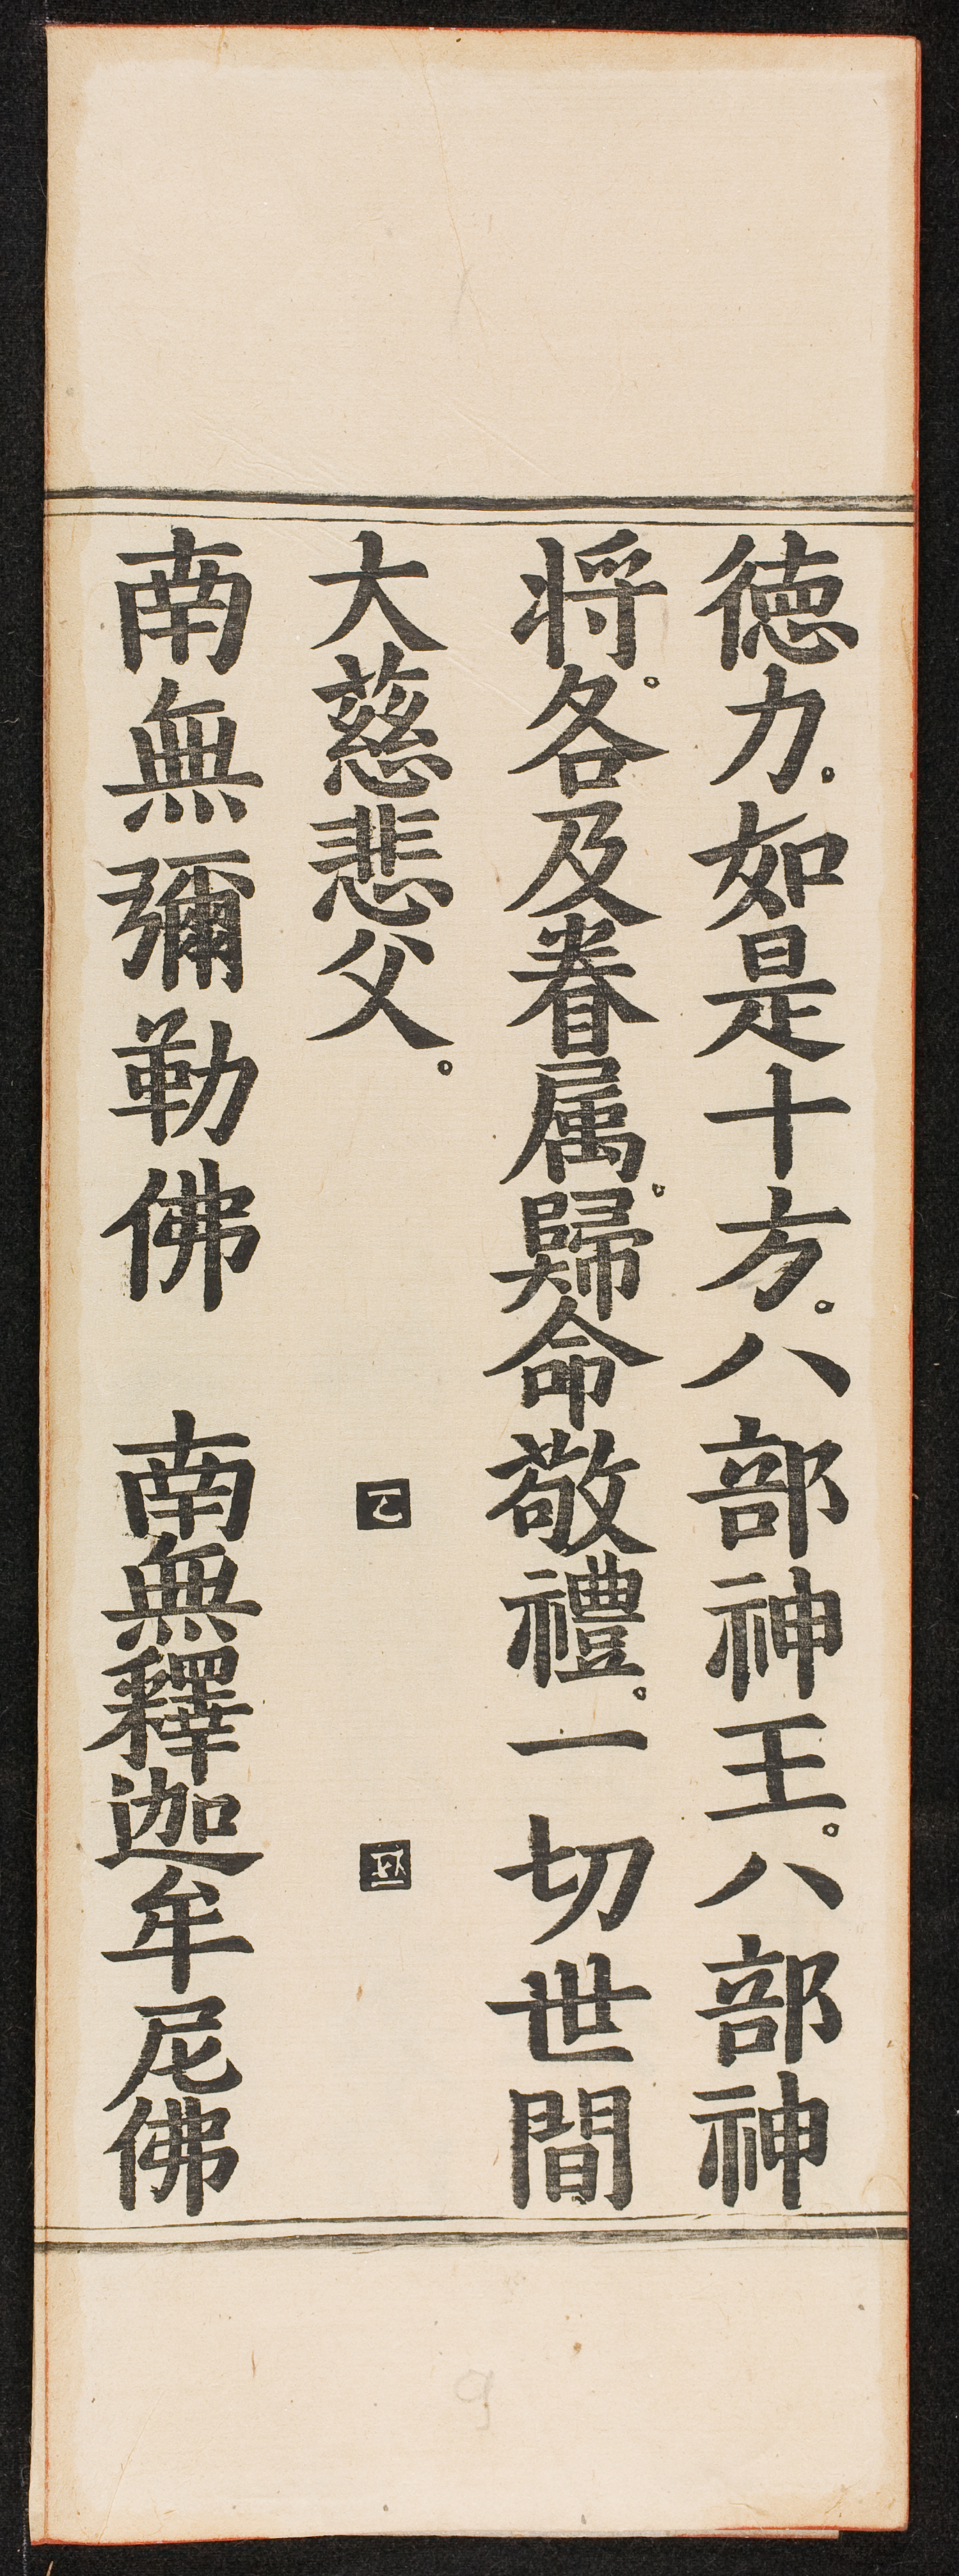 徳力。如是十方。八部神王。八部神
将。各及眷属。歸命敬禮。一切世間
大慈悲父。
南無彌勒佛　南無釋迦牟尼佛